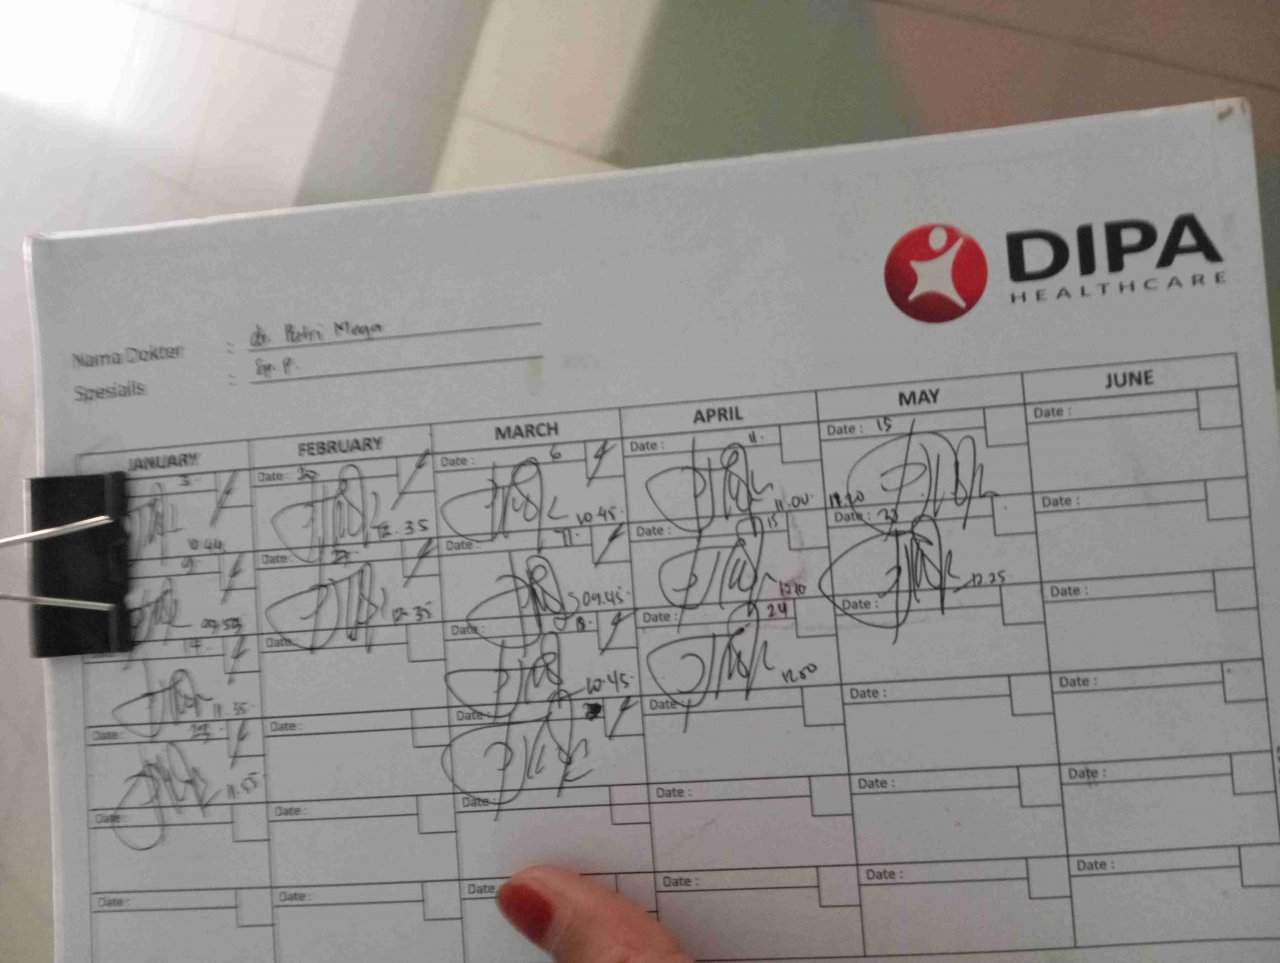 DIPA
HEALTHCARE
Nama Dokter : dr. Putri Mega
Spesialis : Sp. P.
JANUARY FEBRUARY MARCH APRIL MAY JUNE
Date: 20 Date: 6 Date: 11. Date: 15 Date:
10.44 12.35 10.45 11.00 12.20
9. Date: 11. Date: 15 Date: 22 Date:
09.50 12.35 09.45 12.10 12.25
14. Date: 18. Date: 24 Date: Date:
11.35 10.45 12.00
Date: Date: Date: Date: Date: Date:
11.55
Date: Date: Date: Date: Date: Date:
Date: Date: Date: Date: Date: Date: